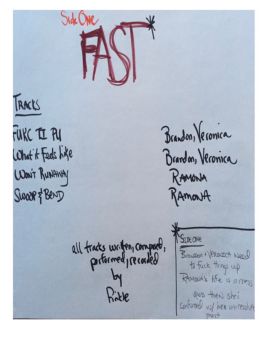 Side One
FAST
TRACKS
FUKC TI PU Brandon, Veronica
What it Feels like Brandon, Veronica
Won't Runaway RAMONA
SWOOP & BEND RAMONA
all tracks written, composed,
performed, recorded
by
SIDE ONE
Brandon & Veronica need
to fuck things up
Ramona's life is a mess
and then she's
confronted w/ her
past